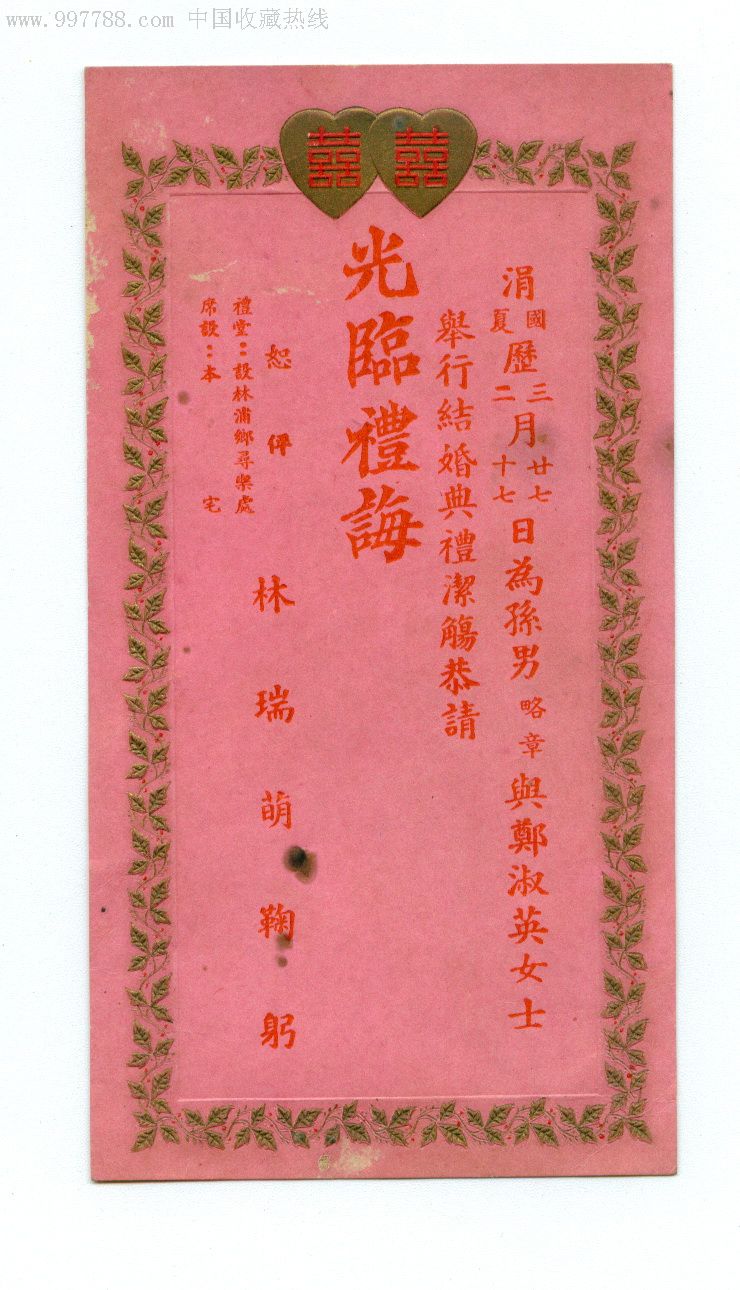 www.997788.com 中国收藏热线
囍 囍
涓國夏歷三二月廿七十七日為孫男略章與鄭淑英女士
舉行結婚典禮潔觴恭請
光臨禮誨
恕俥
林瑞萌鞠躬
禮堂：設林浦鄉尋樂處
席設：本宅